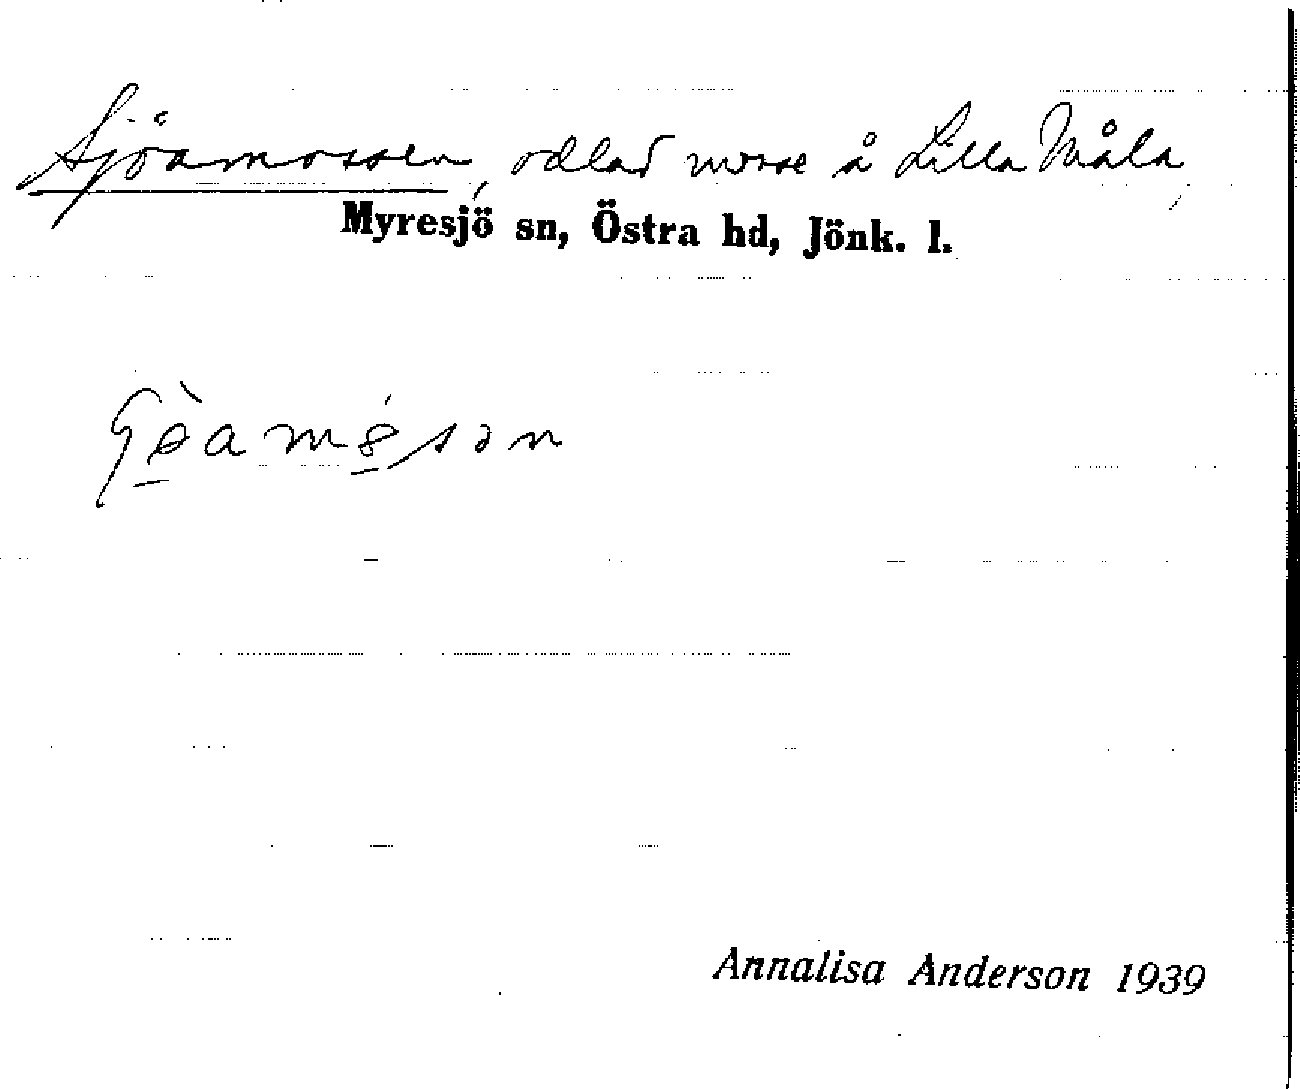 Sjöamossen, odlad mosse å Lilla Måla,
Myresjö sn, Östra hd, Jönk. l.
Annalisa Anderson 1939